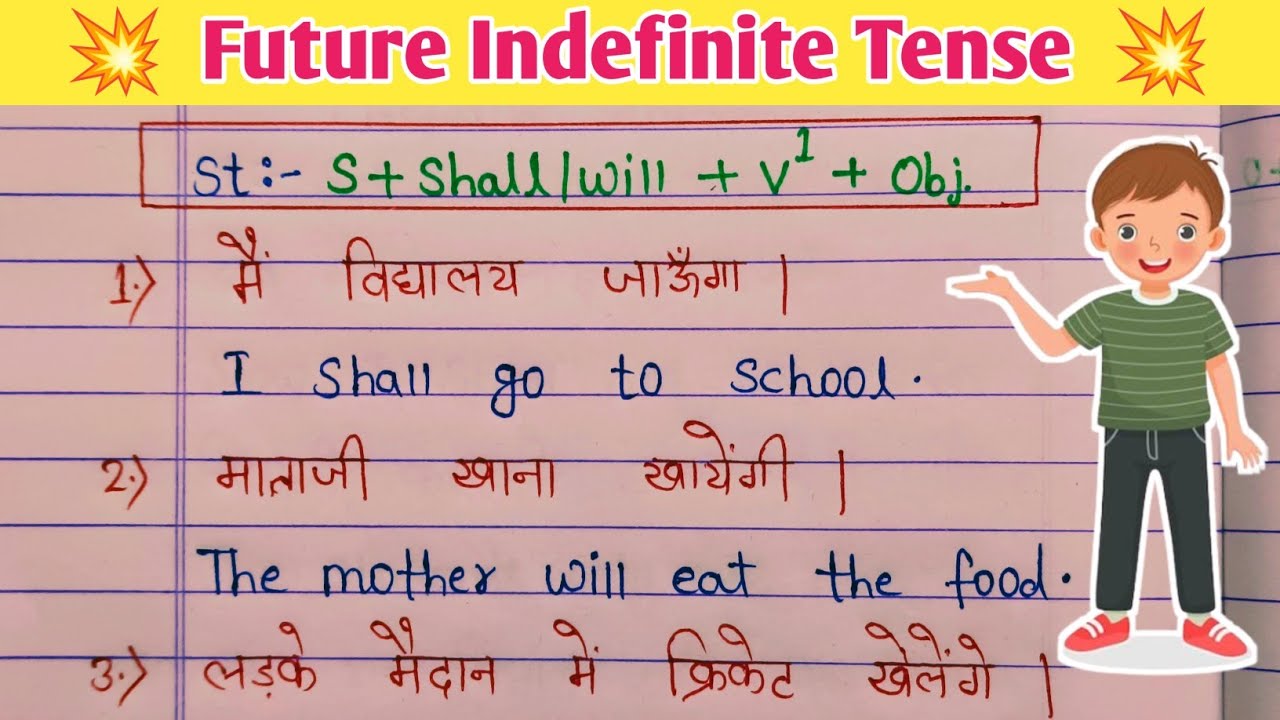 Future Indefinite Tense
St:- S + Shall/will + V¹ + Obj.
1.) मैं विद्यालय जाऊँगा |
I Shall go to School.
2.) माताजी खाना खायेंगी |
The mother will eat the food.
3.) लड़के मैदान में क्रिकेट खेलेंगे |